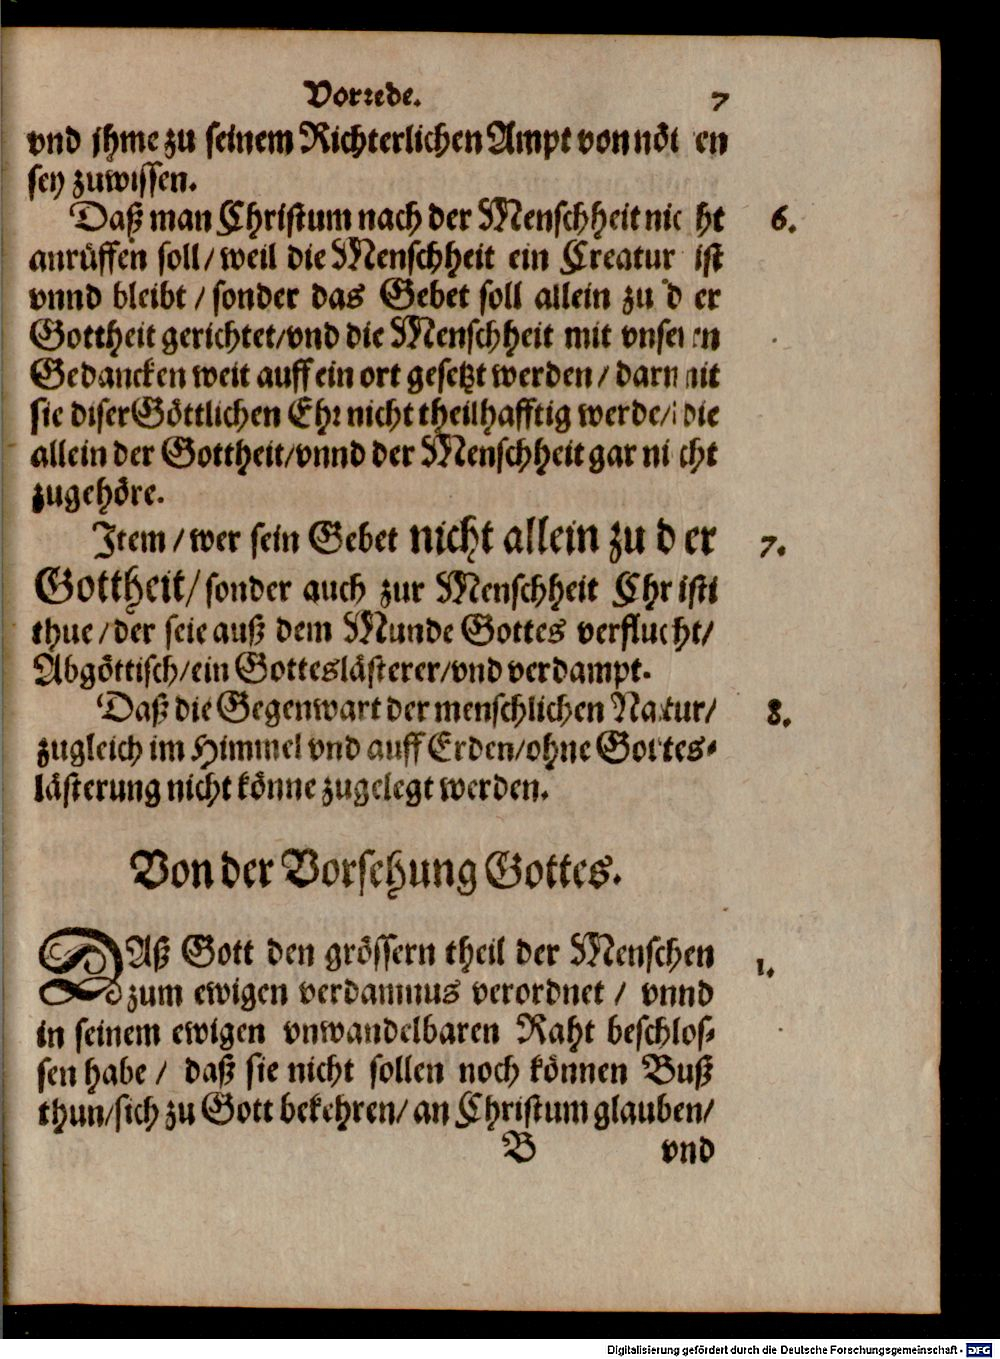 Vorrede. 7
vnd jhme zu seinem Richterlichen Ampt von nöten
sey zuwissen.
Daß man Christum nach der Menschheit nicht 6.
anrüffen soll/ weil die Menschheit ein Creatur ist
vnnd bleibt / sonder das Gebet soll allein zu der
Gottheit gerichtet/vnd die Menschheit mit vnseren
Gedancken weit auff ein ort gesetzt werden / darmit
sie diser Göttlichen Ehr nicht theilhafftig werde/ die
allein der Gottheit/vnnd der Menschheit gar nicht
zugehöre.
Item / wer sein Gebet nicht allein zu der 7.
Gottheit/ sonder auch zur Menschheit Christi
thue / der seie auß dem Munde Gottes verflucht/
Abgöttisch/ein Gotteslästerer/vnd verdampt.
Daß die Gegenwart der menschlichen Natur/ 8.
zugleich im Himmel vnd auff Erden/ohne Gottes-
lästerung nicht könne zugelegt werden.
Von der Vorsehung Gottes.
DAß Gott den grössern theil der Menschen 1.
zum ewigen verdamnus verordnet / vnnd
in seinem ewigen vnwandelbaren Raht beschlos-
sen habe / daß sie nicht sollen noch können Buß
thun/sich zu Gott bekehren/ an Christum glauben/
B vnd
Digitalisierung gefördert durch die Deutsche Forschungsgemeinschaft - DFG